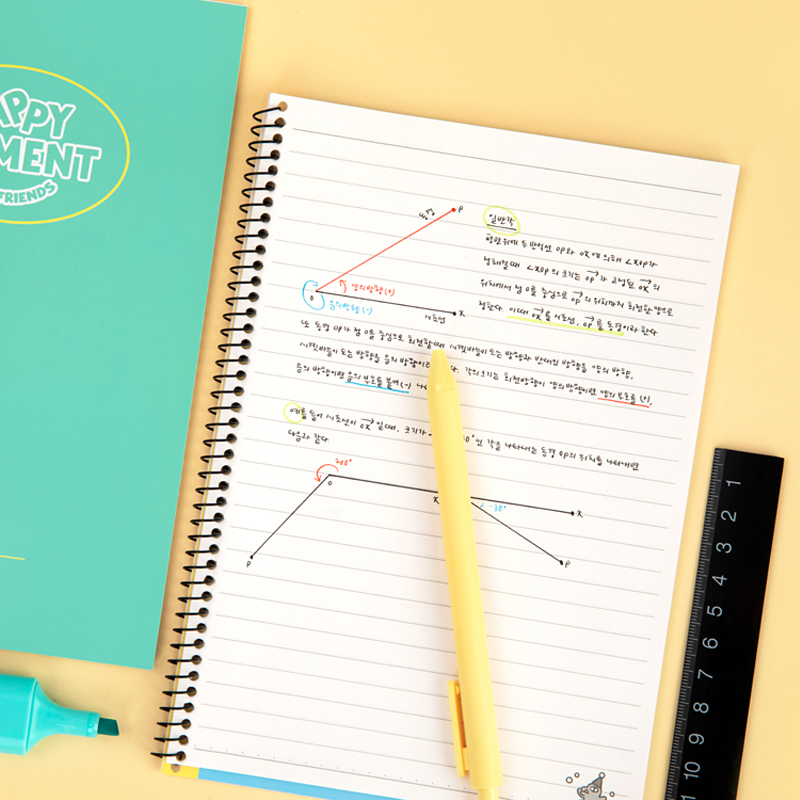 APPY
MENT
FRIENDS
P
동경
일반각
평면위에 두 반직선 OP와 OX에 의해 ∠XOP가
정해질때 ∠XOP의 크기는 OP가 고정된 OX의
위치에서 점 O를 중심으로 OP의 위치까지 회전한 양으로
정한다. 이때 OX를 시초선, OP를 동경이라 한다.
양의방향(+)
O
음의방향(-)
시초선
X
또 동경 OP가 점 O를 중심으로 회전할때 시곗바늘이 도는 방향과 반대인 방향을 양의 방향,
시곗바늘이 도는 방향을 음의 방향이라 다. 각의크기는 회전방향이 양의방향이면 양의부호를 (+),
음의 방향이면 음의 부호를 붙여(-) 나
예를 들어 시초선이 OX 일때, 크기가 30°인 각을 나타내는 동경 OP의 위치를 나타내면
다음과 같다.
O
X
X
-30°
P
P
1 2 3 4 5 6 7 8 9 10 11